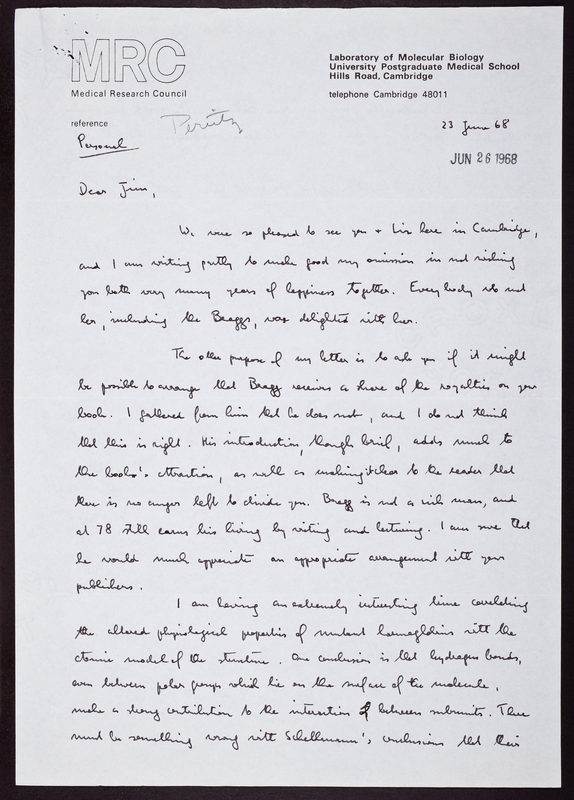 MRC
Medical Research Council
Laboratory of Molecular Biology
University Postgraduate Medical School
Hills Road, Cambridge
telephone Cambridge 48011
reference
Personal
Perutz
23 June 68
JUN 26 1968
Dear Jim,
We were so pleased to see you + Liz here in Cambridge,
and I am writing partly to make good my omission in not wishing
you both very many years of happiness together. Everybody who met
her, including the Braggs, was delighted with her.
The other purpose of my letter is to ask you if it might
be possible to arrange that Bragg receives a share of the royalties on your
book. I gathered from him that he does not, and I do not think
that this is right. His introduction, though brief, adds much to
the book's attraction, as well as making it clear to the reader that
there is no anger left to divide you. Bragg is not a rich man, and
at 78 still earns his living by writing and lecturing. I am sure that
he would much appreciate an appropriate arrangement with your
publishers.
I am having an extremely interesting time correlating
the altered physiological properties of mutant haemoglobins with the
atomic model of the structure. One conclusion is that hydrogen bonds,
even between polar groups which lie on the surface of the molecule,
make a strong contribution to the interaction of between subunits. There
must be something wrong with Schellmann's conclusions that their